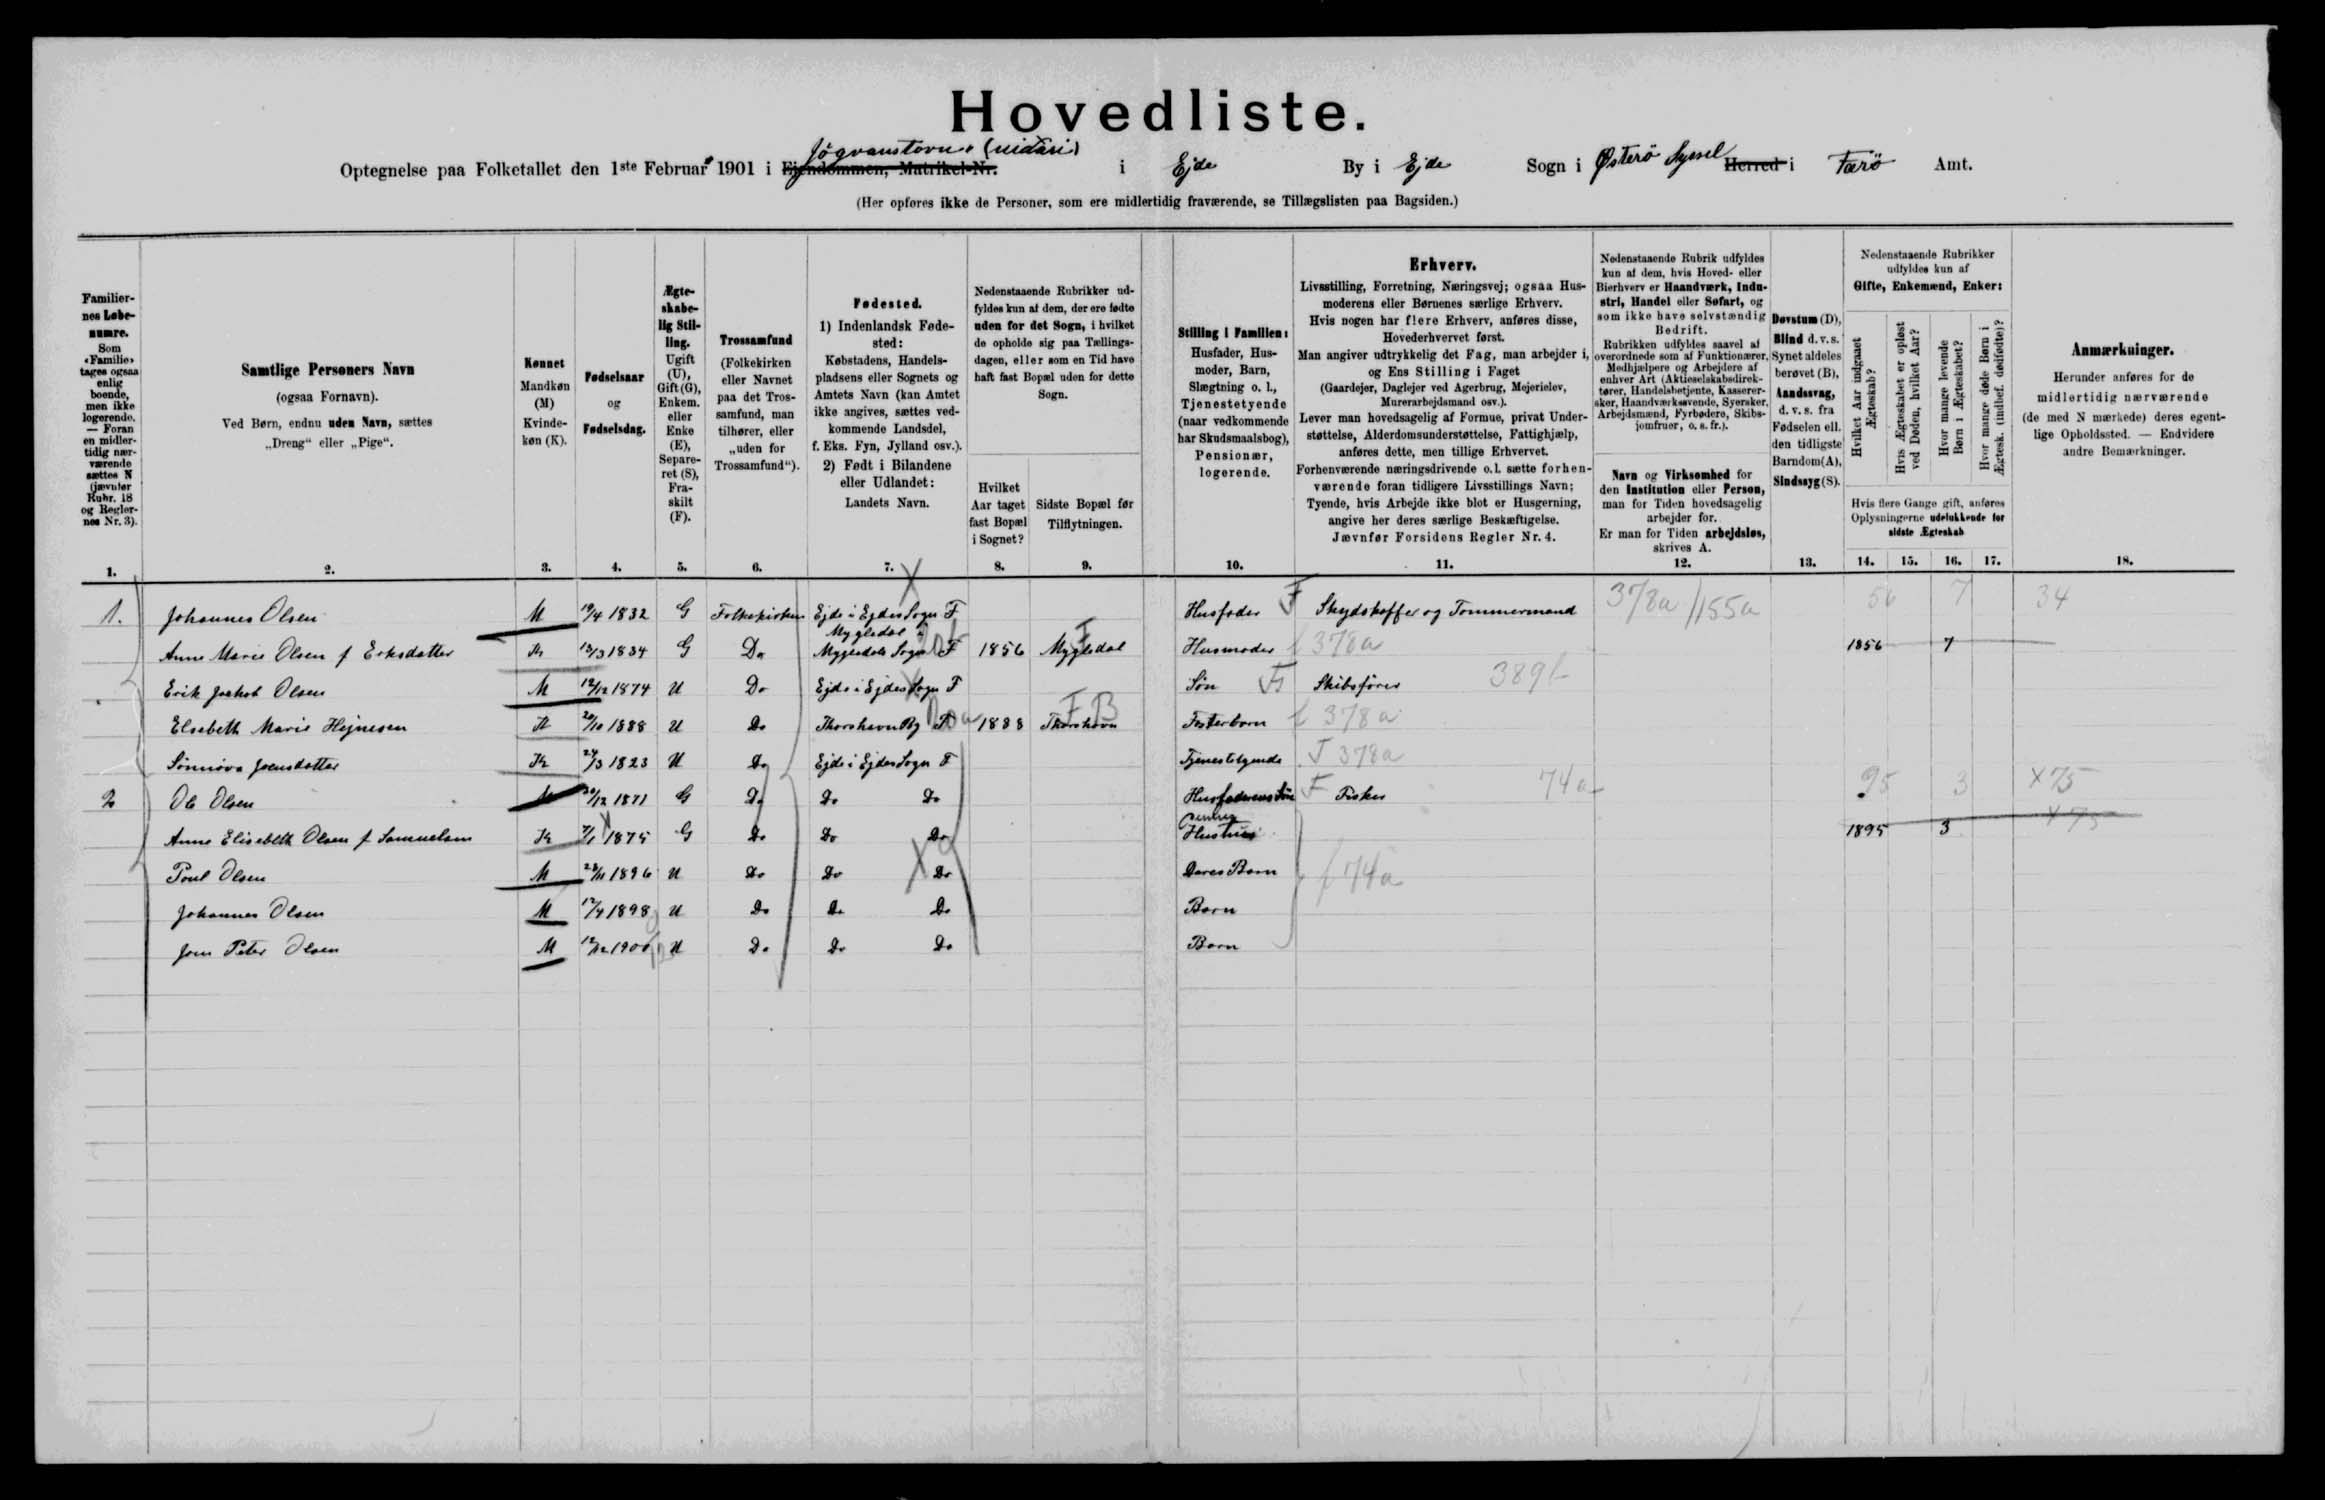 Hovedliste.
Jógvanstovu (niðari)
Optegnelse paa Folketallet den 1ste Februar 1901 i Ejendommen, Matrikel-Nr. i Ejde By i Ejde Sogn i Østerö Syssel Herred i Færö Amt.
(Her opføres ikke de Personer, som ere midlertidig fraværende, se Tillægslisten paa Bagsiden.)
Familiernes Løbenumre.
Som «Familie» tages ogsaa enlig boende, men ikke logerende. — Foran en midlertidig nærværende sættes N (jævnfør Rubr. 18 og Reglernes Nr. 3).
Samtlige Personers Navn
(ogsaa Fornavn).
Ved Børn, endnu uden Navn, sættes
„Dreng“ eller „Pige“.
Kønnet
Mandkøn (M)
Kvindekøn (K).
Fødselsaar
og
Fødselsdag.
Ægteskabelig Stilling.
Ugift (U), Gift (G), Enkem. eller Enke (E), Separeret (S), Fraskilt (F).
Trossamfund
(Folkekirken eller Navnet paa det Trossamfund, man tilhører, eller „uden for Trossamfund“).
Fødested.
1) Indenlandsk Fødested:
Købstadens, Handelspladsens eller Sognets og Amtets Navn (kan Amtet ikke angives, sættes vedkommende Landsdel, f. Eks. Fyn, Jylland osv.).
2) Født i Bilandene eller Udlandet:
Landets Navn.
Nedenstaaende Rubrikker udfyldes kun af dem, der ere fødte uden for det Sogn, i hvilket de opholde sig paa Tællingsdagen, eller som en Tid have haft fast Bopæl uden for dette Sogn.
Hvilket Aar taget fast Bopæl i Sognet?
Sidste Bopæl før Tilflytningen.
Stilling i Familien:
Husfader, Husmoder, Barn, Slægtning o. l., Tjenestetyende (naar vedkommende har Skudsmaalsbog), Pensionær, logerende.
Erhverv.
Livsstilling, Forretning, Næringsvej; ogsaa Husmoderens eller Børnenes særlige Erhverv.
Hvis nogen har flere Erhverv, anføres disse, Hovederhvervet først.
Man angiver udtrykkelig det Fag, man arbejder i, og Ens Stilling i Faget
(Gaardejer, Daglejer ved Agerbrug, Mejerielev, Murerarbejdsmand osv.).
Lever man hovedsagelig af Formue, privat Understøttelse, Alderdomsunderstøttelse, Fattighjælp, anføres dette, men tillige Erhvervet.
Forhenværende næringsdrivende o.l. sætte forhenværende foran tidligere Livsstillings Navn;
Tyende, hvis Arbejde ikke blot er Husgerning, angive her deres særlige Beskæftigelse.
Jævnfør Forsidens Regler Nr. 4.
Nedenstaaende Rubrik udfyldes kun af dem, hvis Hoved- eller Bierhverv er Haandværk, Industri, Handel eller Søfart, og som ikke have selvstændig Bedrift.
Rubrikken udfyldes saavel af overordnede som af Funktionærer, Medhjælpere og Arbejdere af enhver Art (Aktieselskabsdirektører, Handelsbetjente, Kasserersker, Haandværkssvende, Syersker, Arbejdsmænd, Fyrbødere, Skibsjomfruer, o. s. fr.).
Navn og Virksomhed for den Institution eller Person, man for Tiden hovedsagelig arbejder for.
Er man for Tiden arbejdsløs, skrives A.
Døvstum (D), Blind d. v. s. Synet aldeles berøvet (B), Aandssvag, d. v. s. fra Fødselen ell. den tidligste Barndom (A), Sindssyg (S).
Nedenstaaende Rubrikker udfyldes kun af
Gifte, Enkemænd, Enker:
Hvilket Aar indgaaet Ægteskab?
Hvis Ægteskabet er opløst ved Døden, hvilket Aar?
Hvor mange levende Børn i Ægteskabet?
Hvor mange døde Børn i Ægtesk. (indbef. dødfødte)?
Hvis flere Gange gift, anføres Oplysningerne udelukkende for sidste Ægteskab
Anmærkninger.
Herunder anføres for de midlertidig nærværende (de med N mærkede) deres egentlige Opholdssted. — Endvidere andre Bemærkninger.
1. 2. 3. 4. 5. 6. 7. 8. 9. 10. 11. 12. 13. 14. 15. 16. 17. 18.
1. Johannes Olsen M 19/4 1832 G Folkekirken Ejde i Ejdes Sogn F Husfader F Skydskaffer og Tømmermand 378a/155a 56 7 34
Anne Marie Olsen f Eriksdatter K 13/3 1834 G Do Mygledal i Mygledals Sogn F 1856 Mygledal F Husmoder f 378a 1856 7
Erik Jackob Olsen M 12/12 1874 U Do Ejde i Ejdes Sogn F Søn Skibsfører 389b
Elsebeth Marie Hejnesen K 20/10 1888 U Do Thorshavn By F 1888 Thorshavn FB Fosterbarn f 378a
Sunneva Joensdatter K 24/3 1823 U Do Ejde i Ejdes Sogn F Tjenestetyende T 378a
2 Ole Olsen M 20/12 1871 G Do Do Do Husfaderens Søn F Fisker 74a 95 3 x75
Anne Elisebeth Olsen f Samuelsen K 7/1 1875 G Do Do Do Hustru 1895 3 x75
Poul Olsen M 28/11 1896 U Do Do Do Deres Barn f 74a
Johannes Olsen M 12/4 1898 U Do Do Do Barn
Joen Peter Olsen M 12/12 1900 U Do Do Do Barn